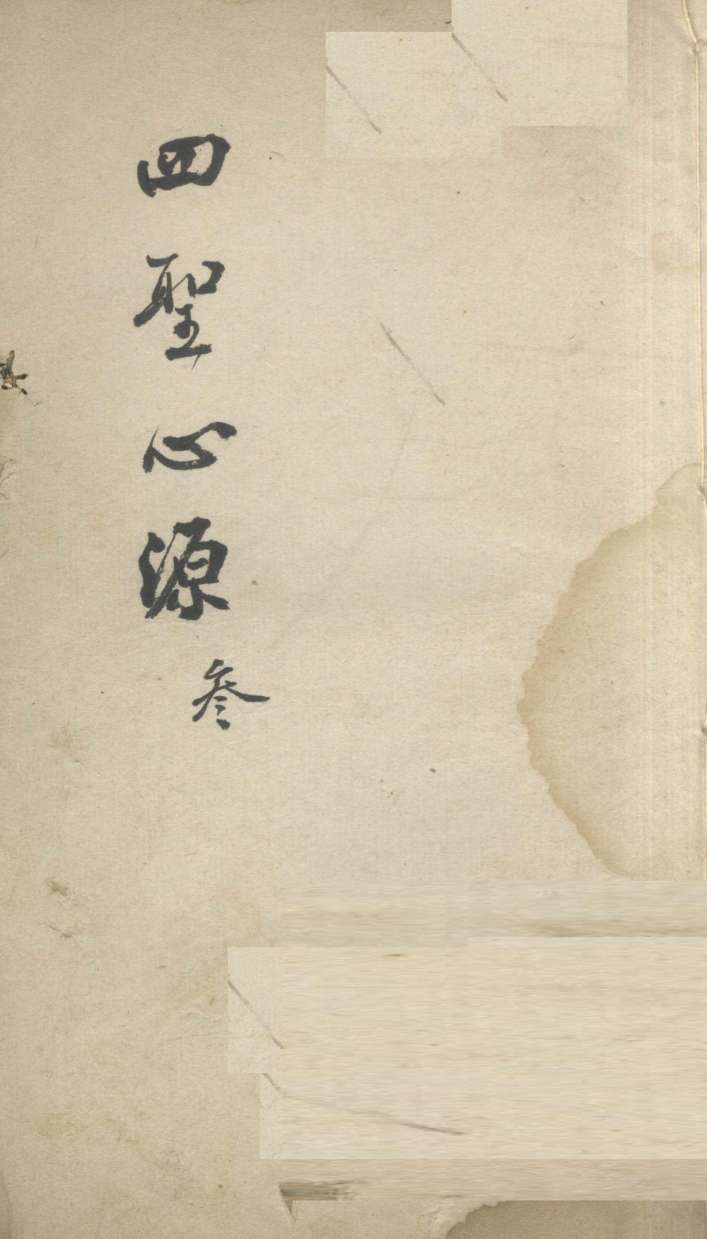 四聖心源
叁